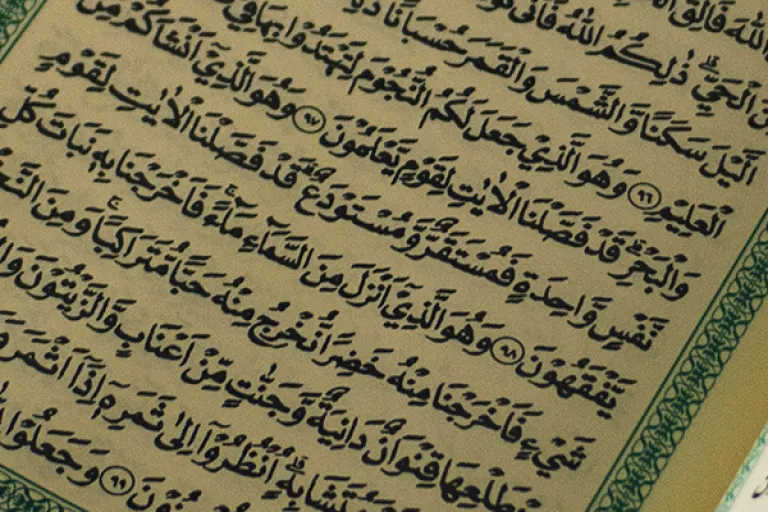 اللّٰهَ فَالِقُ
الْحَيِّ ۗ ذٰلِكُمُ اللّٰهُ فَاَنّٰى
الَّيْلَ سَكَنًا وَّالشَّمْسَ وَالْقَمَرَ حُسْبَانًا
الْعَلِيْمِ ﴿٩٦﴾ وَهُوَ الَّذِيْ جَعَلَ لَكُمُ النُّجُوْمَ لِتَهْتَدُوْا بِهَا فِيْ
وَالْبَحْرِ ۗ قَدْ فَصَّلْنَا الْاٰيٰتِ لِقَوْمٍ يَّعْلَمُوْنَ ﴿٩٧﴾ وَهُوَ الَّذِيْٓ اَنْشَاَكُمْ مِّنْ
نَّفْسٍ وَّاحِدَةٍ فَمُسْتَقَرٌّ وَّمُسْتَوْدَعٌ ۗ قَدْ فَصَّلْنَا الْاٰيٰتِ لِقَوْمٍ
يَّفْقَهُوْنَ ﴿٩٨﴾ وَهُوَ الَّذِيْٓ اَنْزَلَ مِنَ السَّمَاۤءِ مَاۤءً ۚ فَاَخْرَجْنَا بِهٖ نَبَاتَ كُلِّ
شَيْءٍ فَاَخْرَجْنَا مِنْهُ خَضِرًا نُّخْرِجُ مِنْهُ حَبًّا مُّتَرَاكِبًا ۚ وَمِنَ
طَلْعِهَا قِنْوَانٌ دَانِيَةٌ وَّجَنّٰتٍ مِّنْ اَعْنَابٍ وَّالزَّيْتُوْنَ
مُتَشَابِهٍ ۗ اُنْظُرُوْٓا اِلٰى ثَمَرِهٖٓ اِذَآ اَثْمَرَ
﴿٩٩﴾ وَجَعَلُوْا